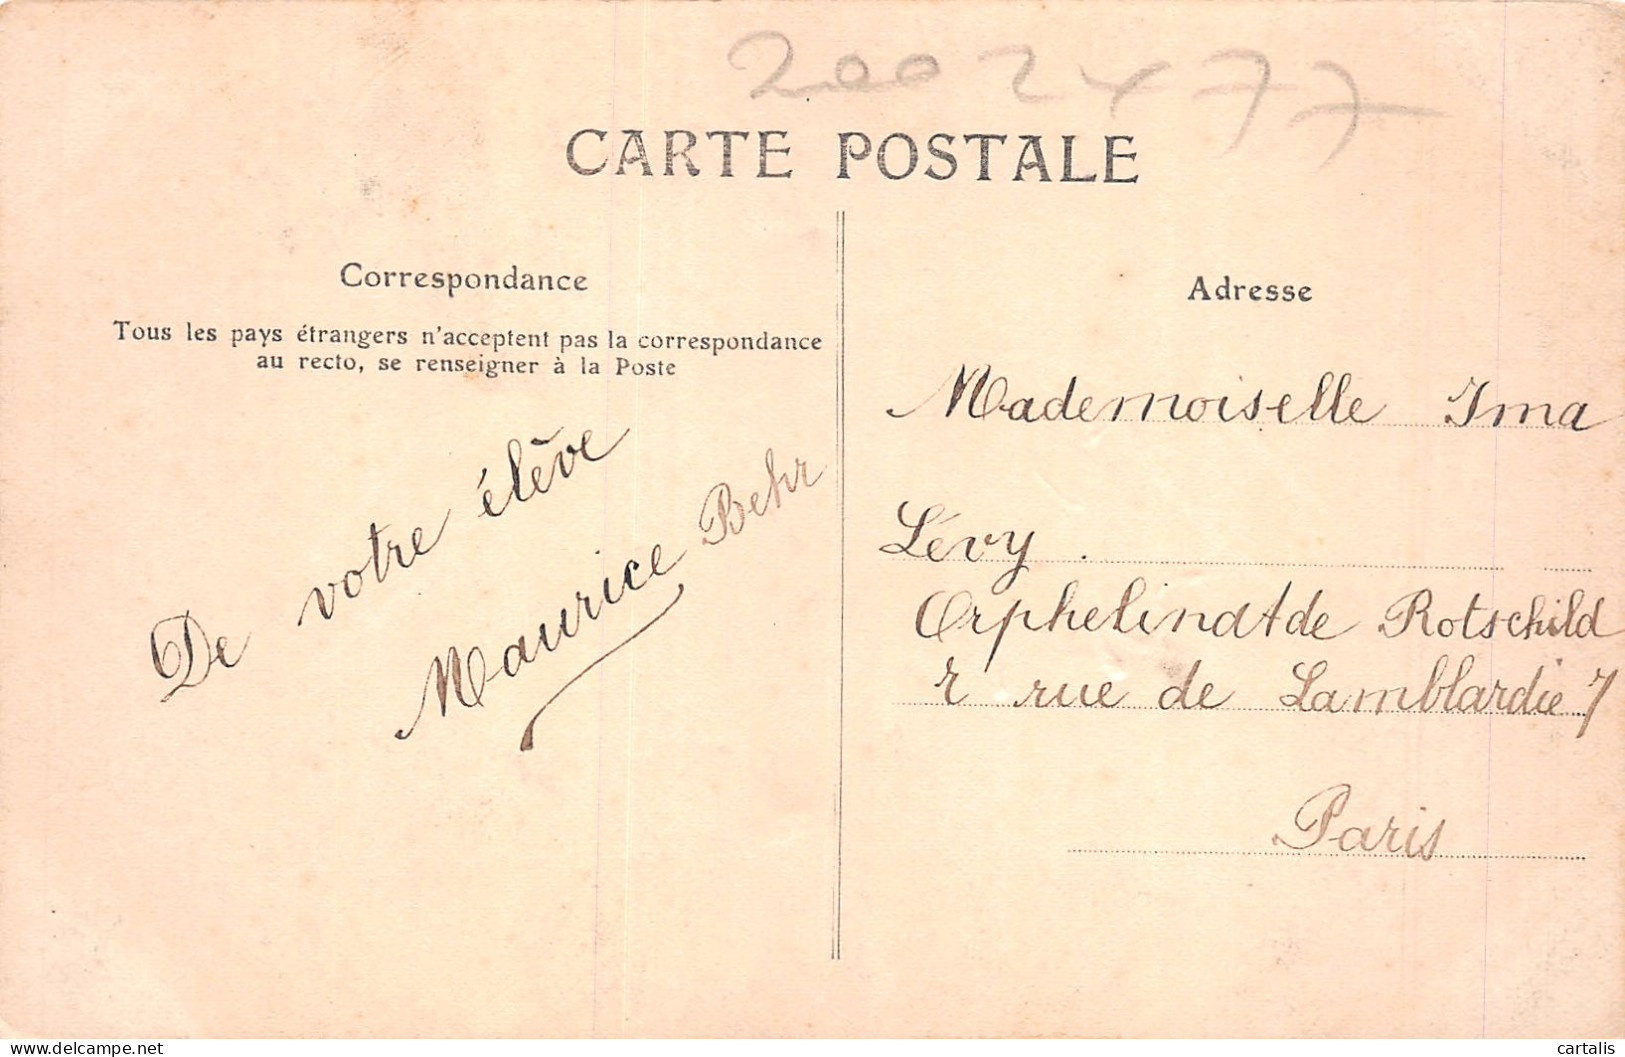 CARTE POSTALE
Correspondance
Tous les pays étrangers n'acceptent pas la correspondance
au recto, se renseigner à la Poste
De votre élève
Maurice Behr
Adresse
Mademoiselle Ima
Lévy .
Orphelinat de Rotschild
7 rue de Lamblardie 7
Paris
delcampe.net
cartalis